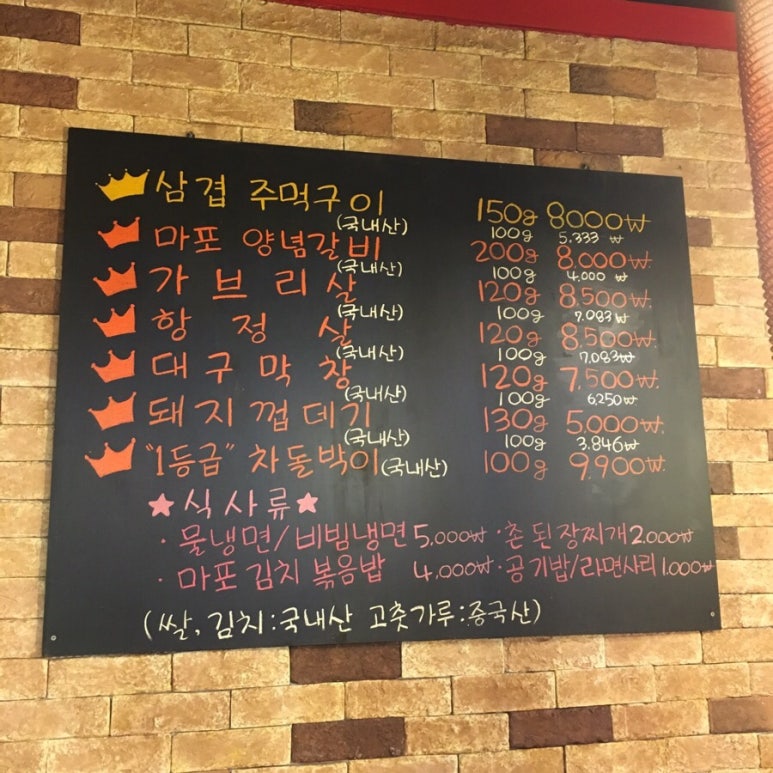 삼겹 주먹구이 150g 8000₩
(국내산) 100g 5.333 ₩
마포 양념갈비 200g 8.000₩.
(국내산) 100g 4.000 ₩
가브리살 120g 8.500₩.
(국내산) 100g 7.083₩
항정살 120g 8.500₩.
(국내산) 100g 7.083₩
대구막창 120g 7.500₩.
(국내산) 100g 6.250₩
돼지껍데기 130g 5.000₩.
(국내산) 100g 3.846₩
"1등급" 차돌박이 (국내산) 100g 9.900₩
★식사류★
· 물냉면/비빔냉면 5.000₩ · 촌된장찌개 2.000₩
· 마포 김치 볶음밥 4.000₩ · 공기밥/라면사리 1.000₩
(쌀, 김치:국내산 고춧가루:중국산)